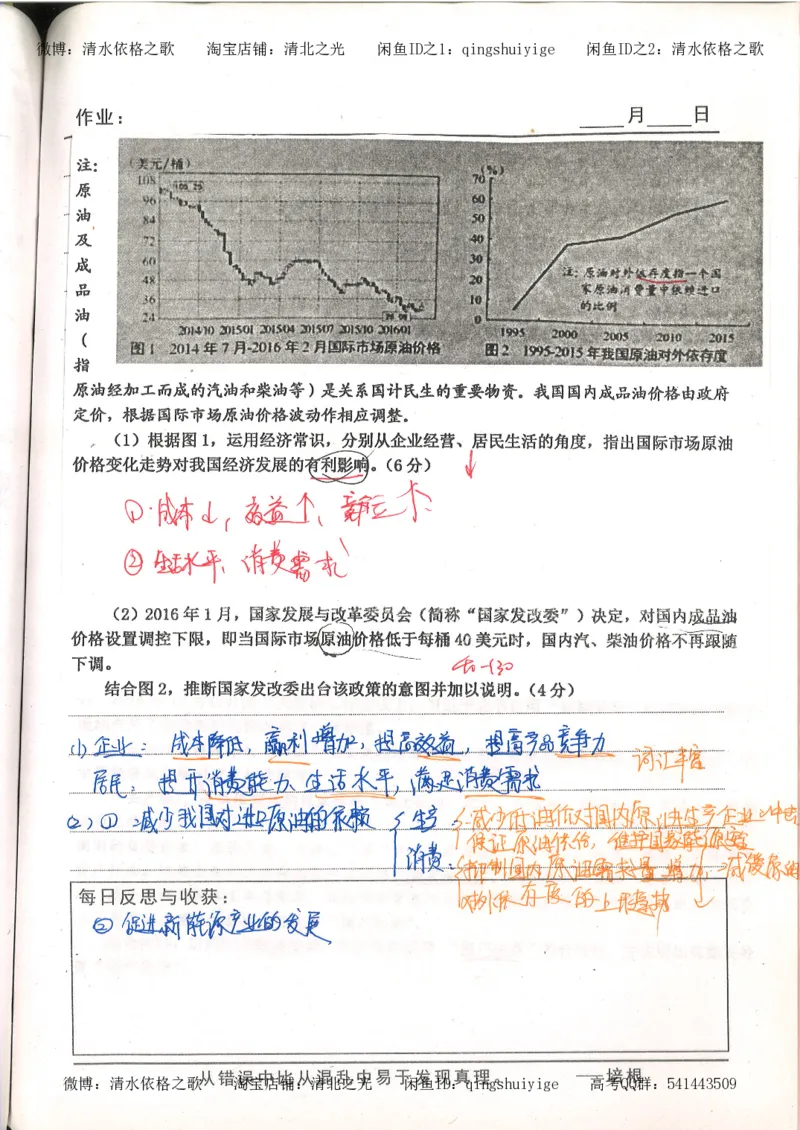 微博：清水依格之歌 淘宝店铺：清北之光 闲鱼ID之1：qingshuiyige 闲鱼ID之2：清水依格之歌
作业： 月 日
注：
原
油
及
成
品
油
（
指
（美元/桶）
108
96
84
72
60
48
36
24
2014/10 201501 201504 201507 2015/10 201601
图1 2014年7月-2016年2月国际市场原油价格
（%）
70
60
50
40
30
20
10
0
注：原油对外依存度指一个国
家原油消费量中依赖进口
的比例
1995 2000 2005 2010 2015
图2 1995-2015年我国原油对外依存度
原油经加工而成的汽油和柴油等）是关系国计民生的重要物资。我国国内成品油价格由政府
定价，根据国际市场原油价格波动作相应调整。
（1）根据图1，运用经济常识，分别从企业经营、居民生活的角度，指出国际市场原油
价格变化走势对我国经济发展的有利影响。（6分）
①成本↓，效益↑、竞争力↑
②生活水平、消费需求
（2）2016年1月，国家发展与改革委员会（简称“国家发改委”）决定，对国内成品油
价格设置调控下限，即当国际市场原油价格低于每桶40美元时，国内汽、柴油价格不再跟随
下调。
40-130
结合图2，推断国家发改委出台该政策的意图并加以说明。（4分）
(1) 企业：成本降低，赢利增加，提高效益，提高产品竞争力
词汇丰富
居民：提升消费能力、生活水平，满足消费需求
(2) ① 减少我国对进口原油的依赖
生产：减少低油价对国内原油生产企业冲击
保证原油供给，维护国家能源安全
消费：抑制国内原油需求量增加，减缓原油
对外依存度的上升趋势
每日反思与收获：
② 促进新能源产业的发展
从错误中比从混乱中易于发现真理。 ——培根
微博：清水依格之歌 淘宝店铺：清北之光 闲鱼ID：qingshuiyige 高考QQ群：541443509